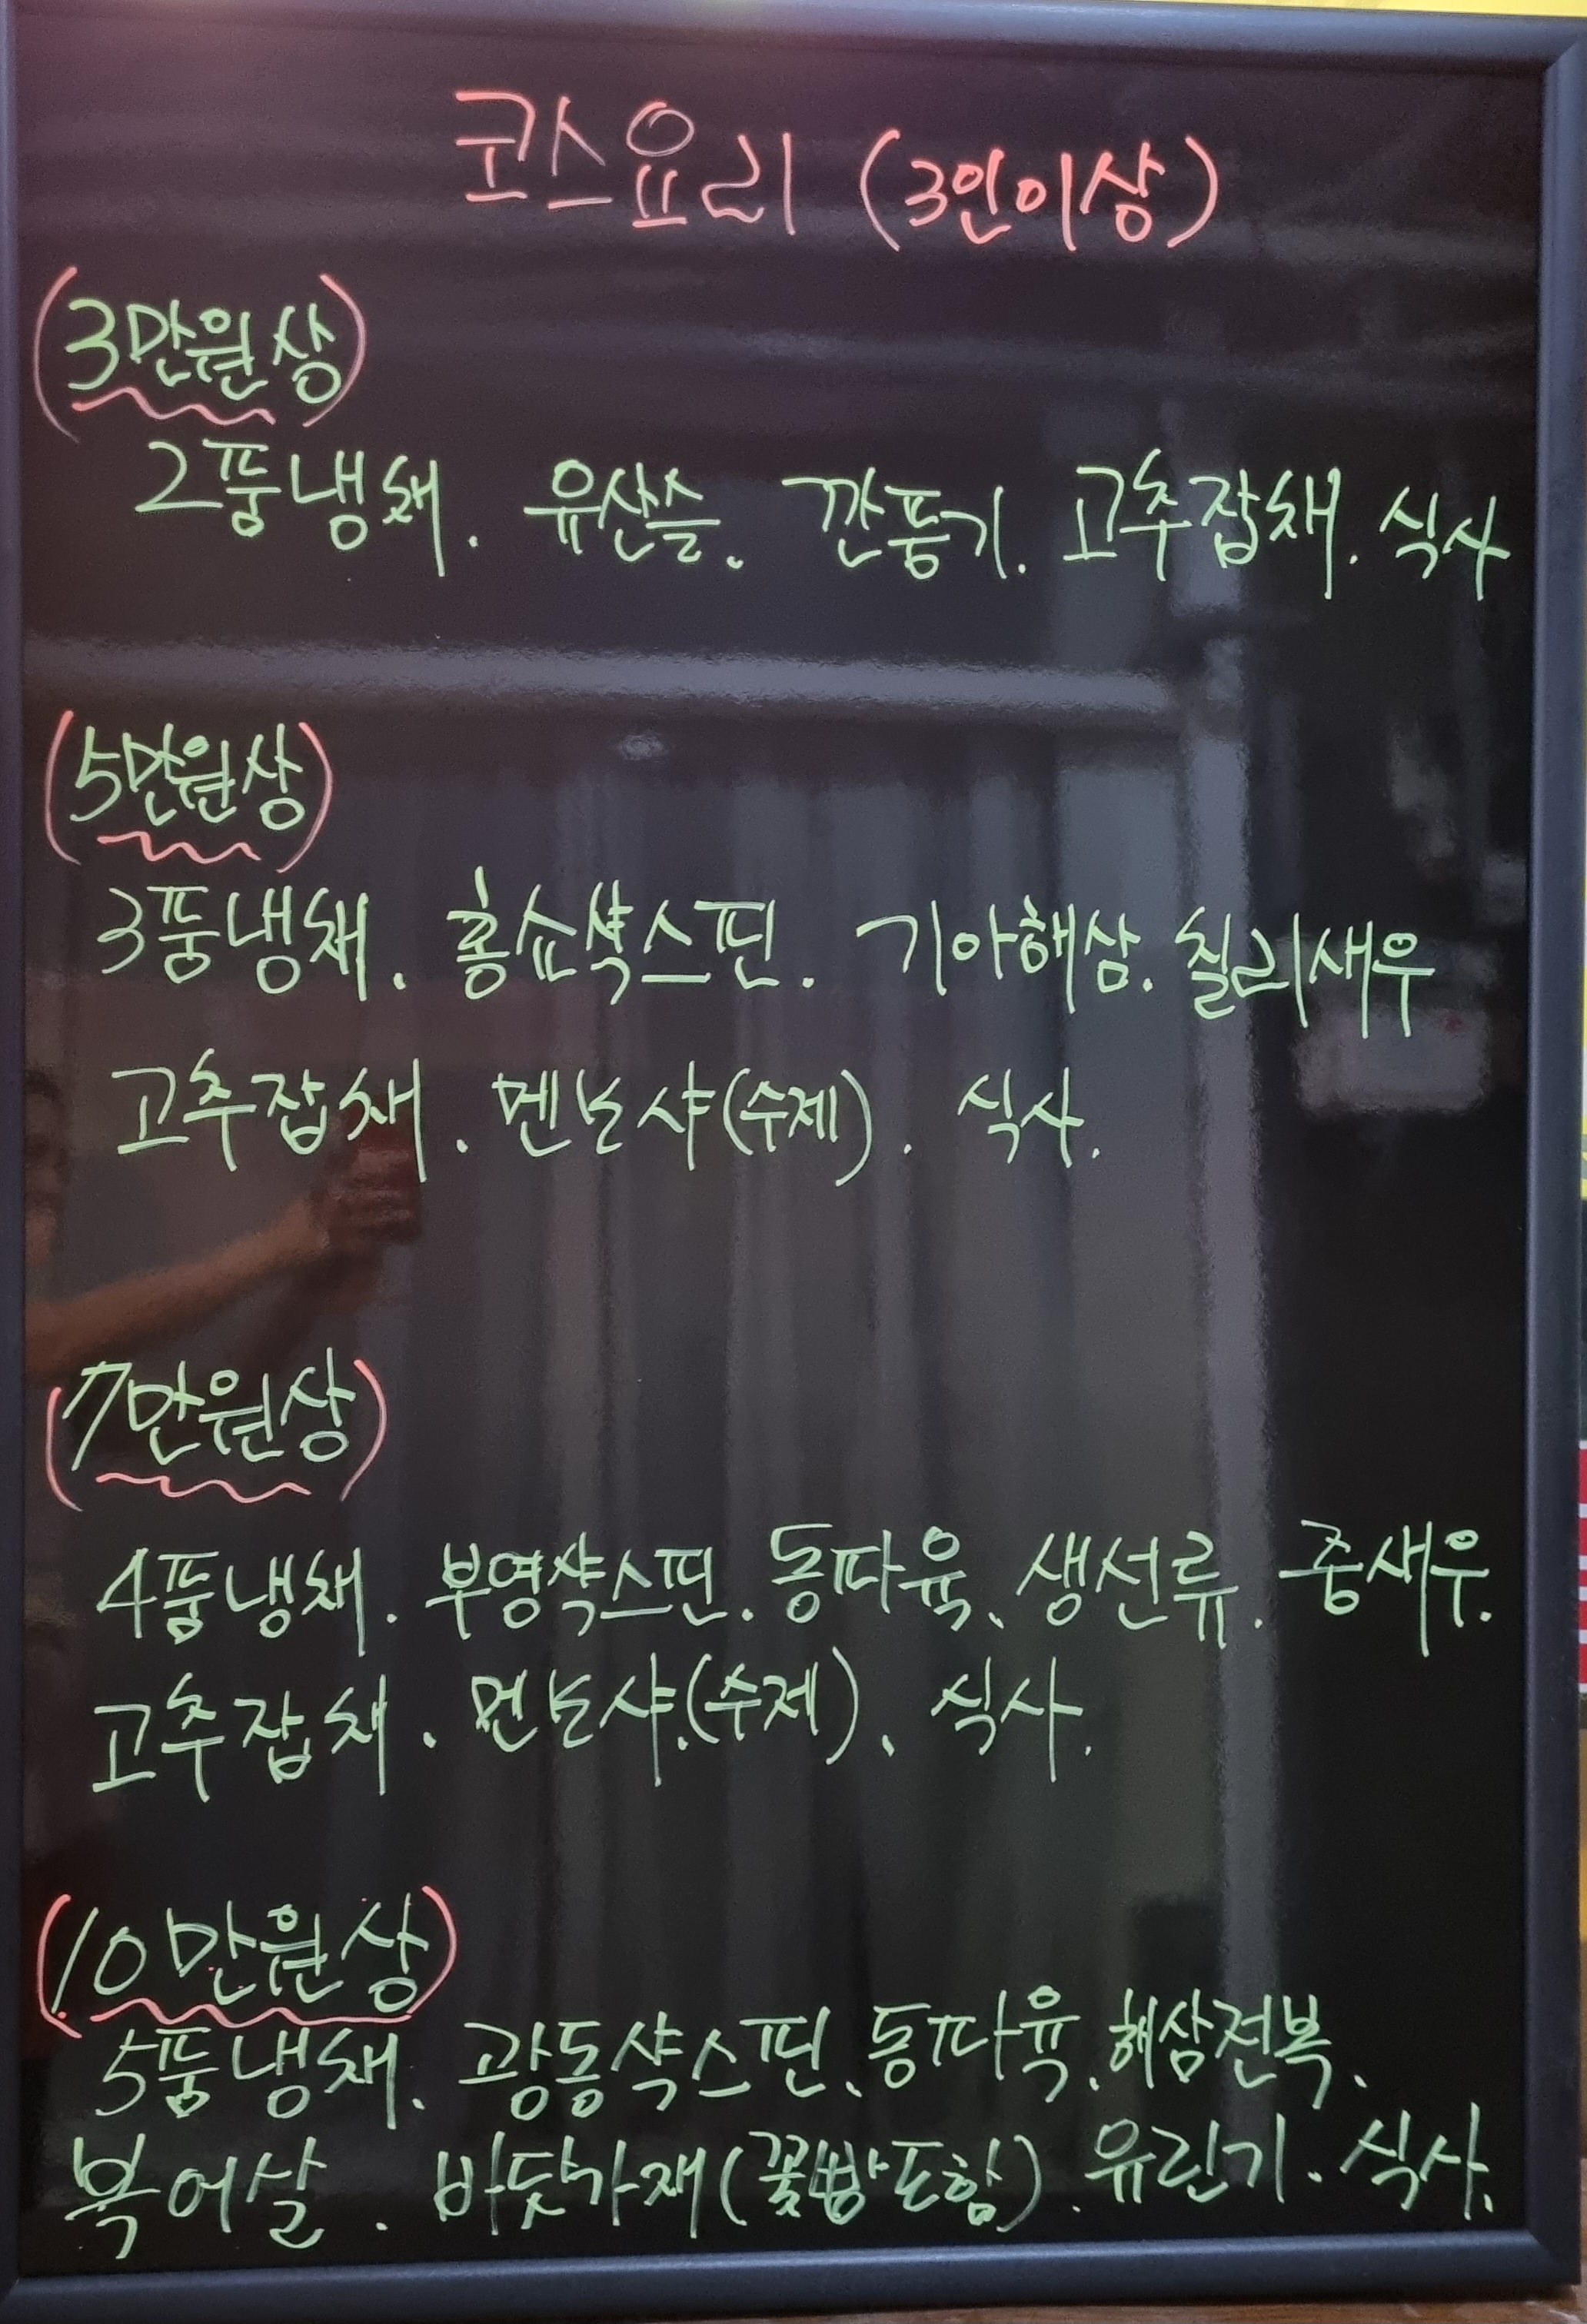 코스요리 (3인이상)
(3만원상)
2품냉채. 유산슬. 깐풍기. 고추잡채. 식사
(5만원상)
3품냉채. 홍쇼샥스핀. 기아해삼. 칠리새우
고추잡채. 멘보샤(수제). 식사.
(7만원상)
4품냉채. 부영샥스핀. 동파육. 생선류. 중새우.
고추잡채. 먼보샤.(수제). 식사.
(10만원상)
5품냉채. 광동샥스핀. 동파육. 해삼전복.
복어살. 바닷가재(꽃빵포함). 유린기. 식사.